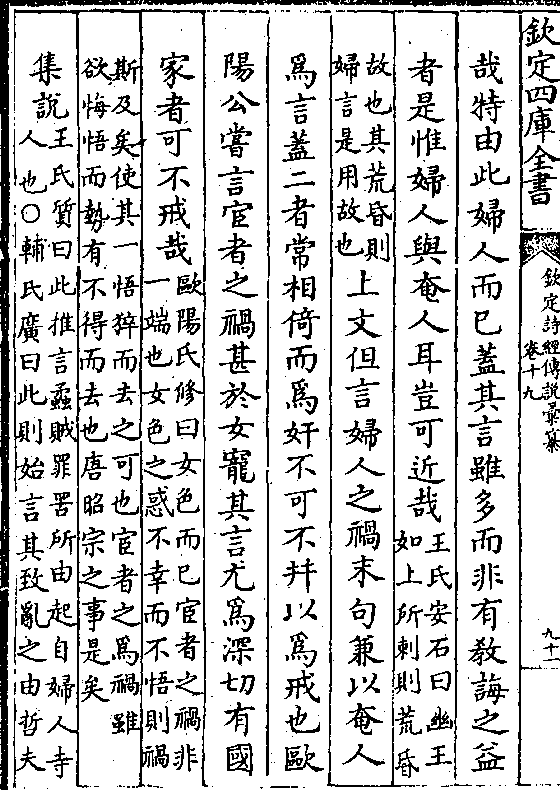 欽定四庫全書
欽定詩經傳說彙纂
卷十九
九十
哉特由此婦人而已蓋其言雖多而非有教誨之益
者是惟婦人與奄人耳豈可近哉
王氏安石曰幽王
如上所刺則荒昏
故也其荒昏則
婦言是用故也
上文但言婦人之禍末句兼以奄人
為言蓋二者常相倚而為奸不可不幷以為戒也歐
陽公嘗言宦者之禍甚於女寵其言尤為深切有國
家者可不戒哉
歐陽氏修曰女色而已宦者之禍非
一端也女色之惑不幸而不悟則禍
斯及矣使其一悟猝而去之可也宦者之為禍雖
欲悔悟而勢有不得而去也唐昭宗之事是矣
集說
王氏質曰此推言蟊賊罪罟所由起自婦人寺
人也○輔氏廣曰此則始言其致亂之由哲夫